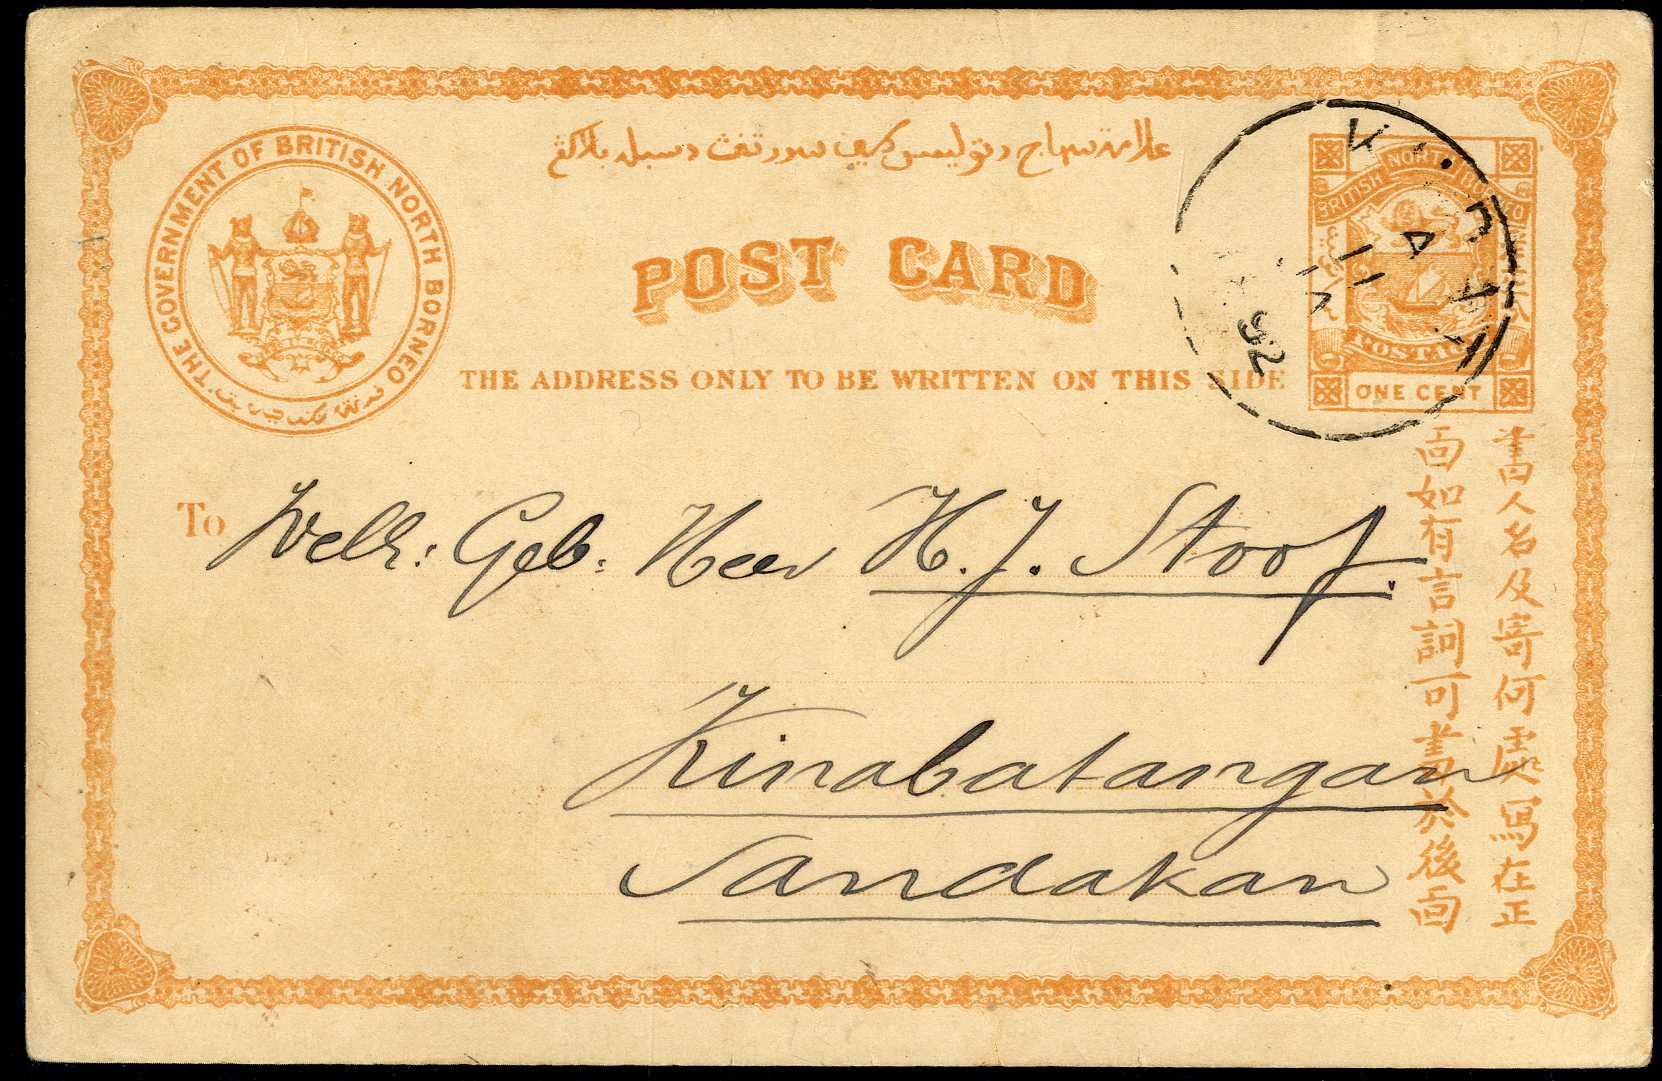 THE GOVERNMENT OF BRITISH NORTH BORNEO
POST CARD
THE ADDRESS ONLY TO BE WRITTEN ON THIS SIDE
BRITISH NORTH BORNEO
POSTAGE
ONE CENT
A
11
92
To Welh: Geb: Heer H. J. Stoof.
Kinabatangan
Sandakan
書人名及寄何處寫在正
面如有言詞可書於後面